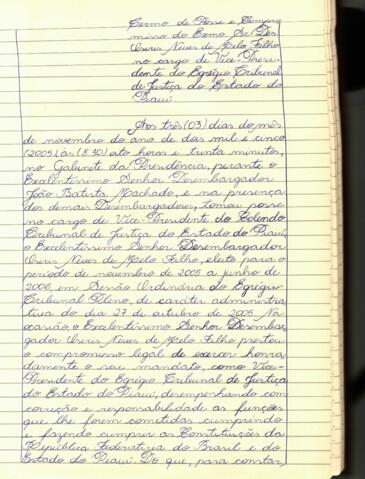 Termo de Posse e Compro
misso do Exmo. Sr. Des.
Osiris Neves de Melo Filho
no cargo de Vice-Presi-
dente do Egrégio Tribunal
de Justiça do Estado do
Piauí.
Aos três (03) dias do mês
de novembro do ano de dois mil e cinco
(2005) às (8:30) oito horas e trinta minutos,
no Gabinete da Presidência, perante o
Excelentíssimo Senhor Desembargador
João Batista Machado, e na presença
dos demais Desembargadores, tomou posse
no cargo de Vice-Presidente do Colendo
Tribunal de Justiça do Estado do Piauí,
o Excelentíssimo Senhor Desembargador
Osiris Neves de Melo Filho, eleito para o
período de novembro de 2005 a junho de
2006, em Sessão Ordinária do Egrégio
Tribunal Pleno, de caráter administra
tiva do dia 27 de outubro de 2005. Na
ocasião, o Excelentíssimo Senhor Desembar
gador Osiris Neves de Melo Filho prestou
o compromisso legal de exercer honra
damente o seu mandato, como Vice-
Presidente do Egrégio Tribunal de Justiça
do Estado do Piauí, desempenhando com
correção e responsabilidade as funções
que lhe forem cometidas cumprindo
e fazendo cumprir as Constituições da
República Federativa do Brasil e do
Estado do Piauí. Do que, para constar,